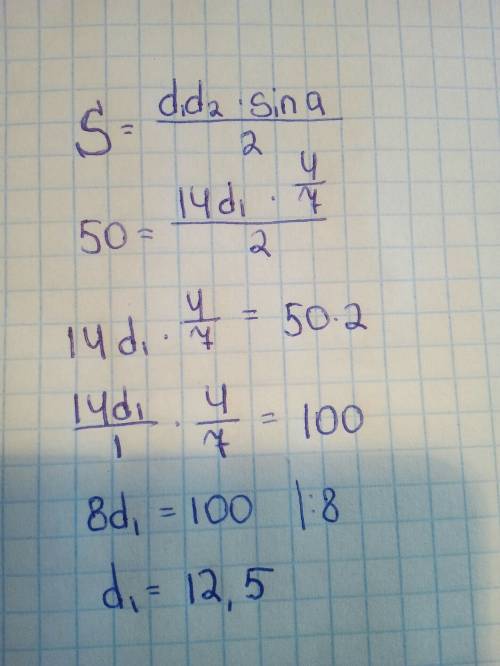 S = d₁d₂ · sin a / 2
50 = 14d₁ · 4/7 / 2
14d₁ · 4/7 = 50·2
14d₁/1 · 4/7 = 100
8d₁ = 100 |:8
d₁ = 12,5